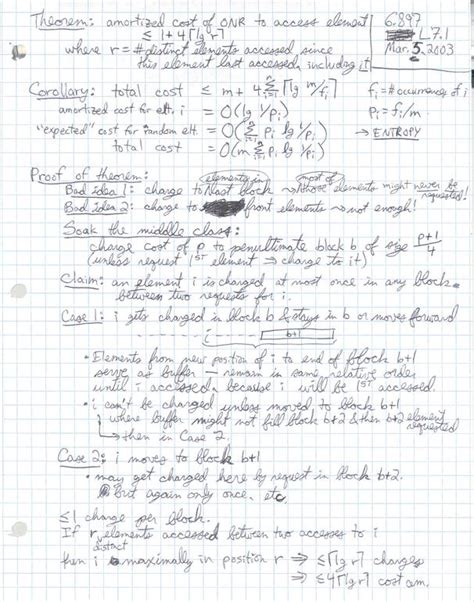 Theorem: amortized cost of ONR to access element
≤ 1+4⌈lg r⌉
where r = # distinct elements accessed since
this element last accessed, including it
6.897
L7.1
Mar. 5, 2003
Corollary: total cost ≤ m + 4 Σ⌈lg m/fᵢ⌉ fᵢ = # occurrences of i
amortized cost for elt. i = O(lg 1/pᵢ) pᵢ = fᵢ/m
"expected" cost for random elt. = O(Σ pᵢ lg 1/pᵢ) → ENTROPY
total cost = O(m Σ pᵢ lg 1/pᵢ)
Proof of theorem:
Bad idea 1: charge to elements in last block → most of those elements might never be requested!
Bad idea 2: charge to front elements → not enough!
Soak the middle class:
charge cost of p to penultimate block b of size (p+1)/4
(unless request 1ST element ⇒ charge to it)
Claim: an element i is charged at most once in any block
between two requests for i.
Case 1: i gets charged in block b & stays in b or moves forward
b+1
• Elements from new position of i to end of block b+1
serve as buffer — remain in same relative order
until i accessed, because i will be 1ST accessed.
• i can't be charged unless moved to block b+1
where buffer might not fill block b+2 & then b+2 element requested
→ then in Case 2.
Case 2: i moves to block b+1
• may get charged here by request in block b+2.
but again only once, etc
≤1 charge per block.
If r distinct elements accessed between two accesses to i
then i maximally in position r ⇒ ≤⌈lg r⌉ charges
⇒ ≤4⌈lg r⌉ cost am.